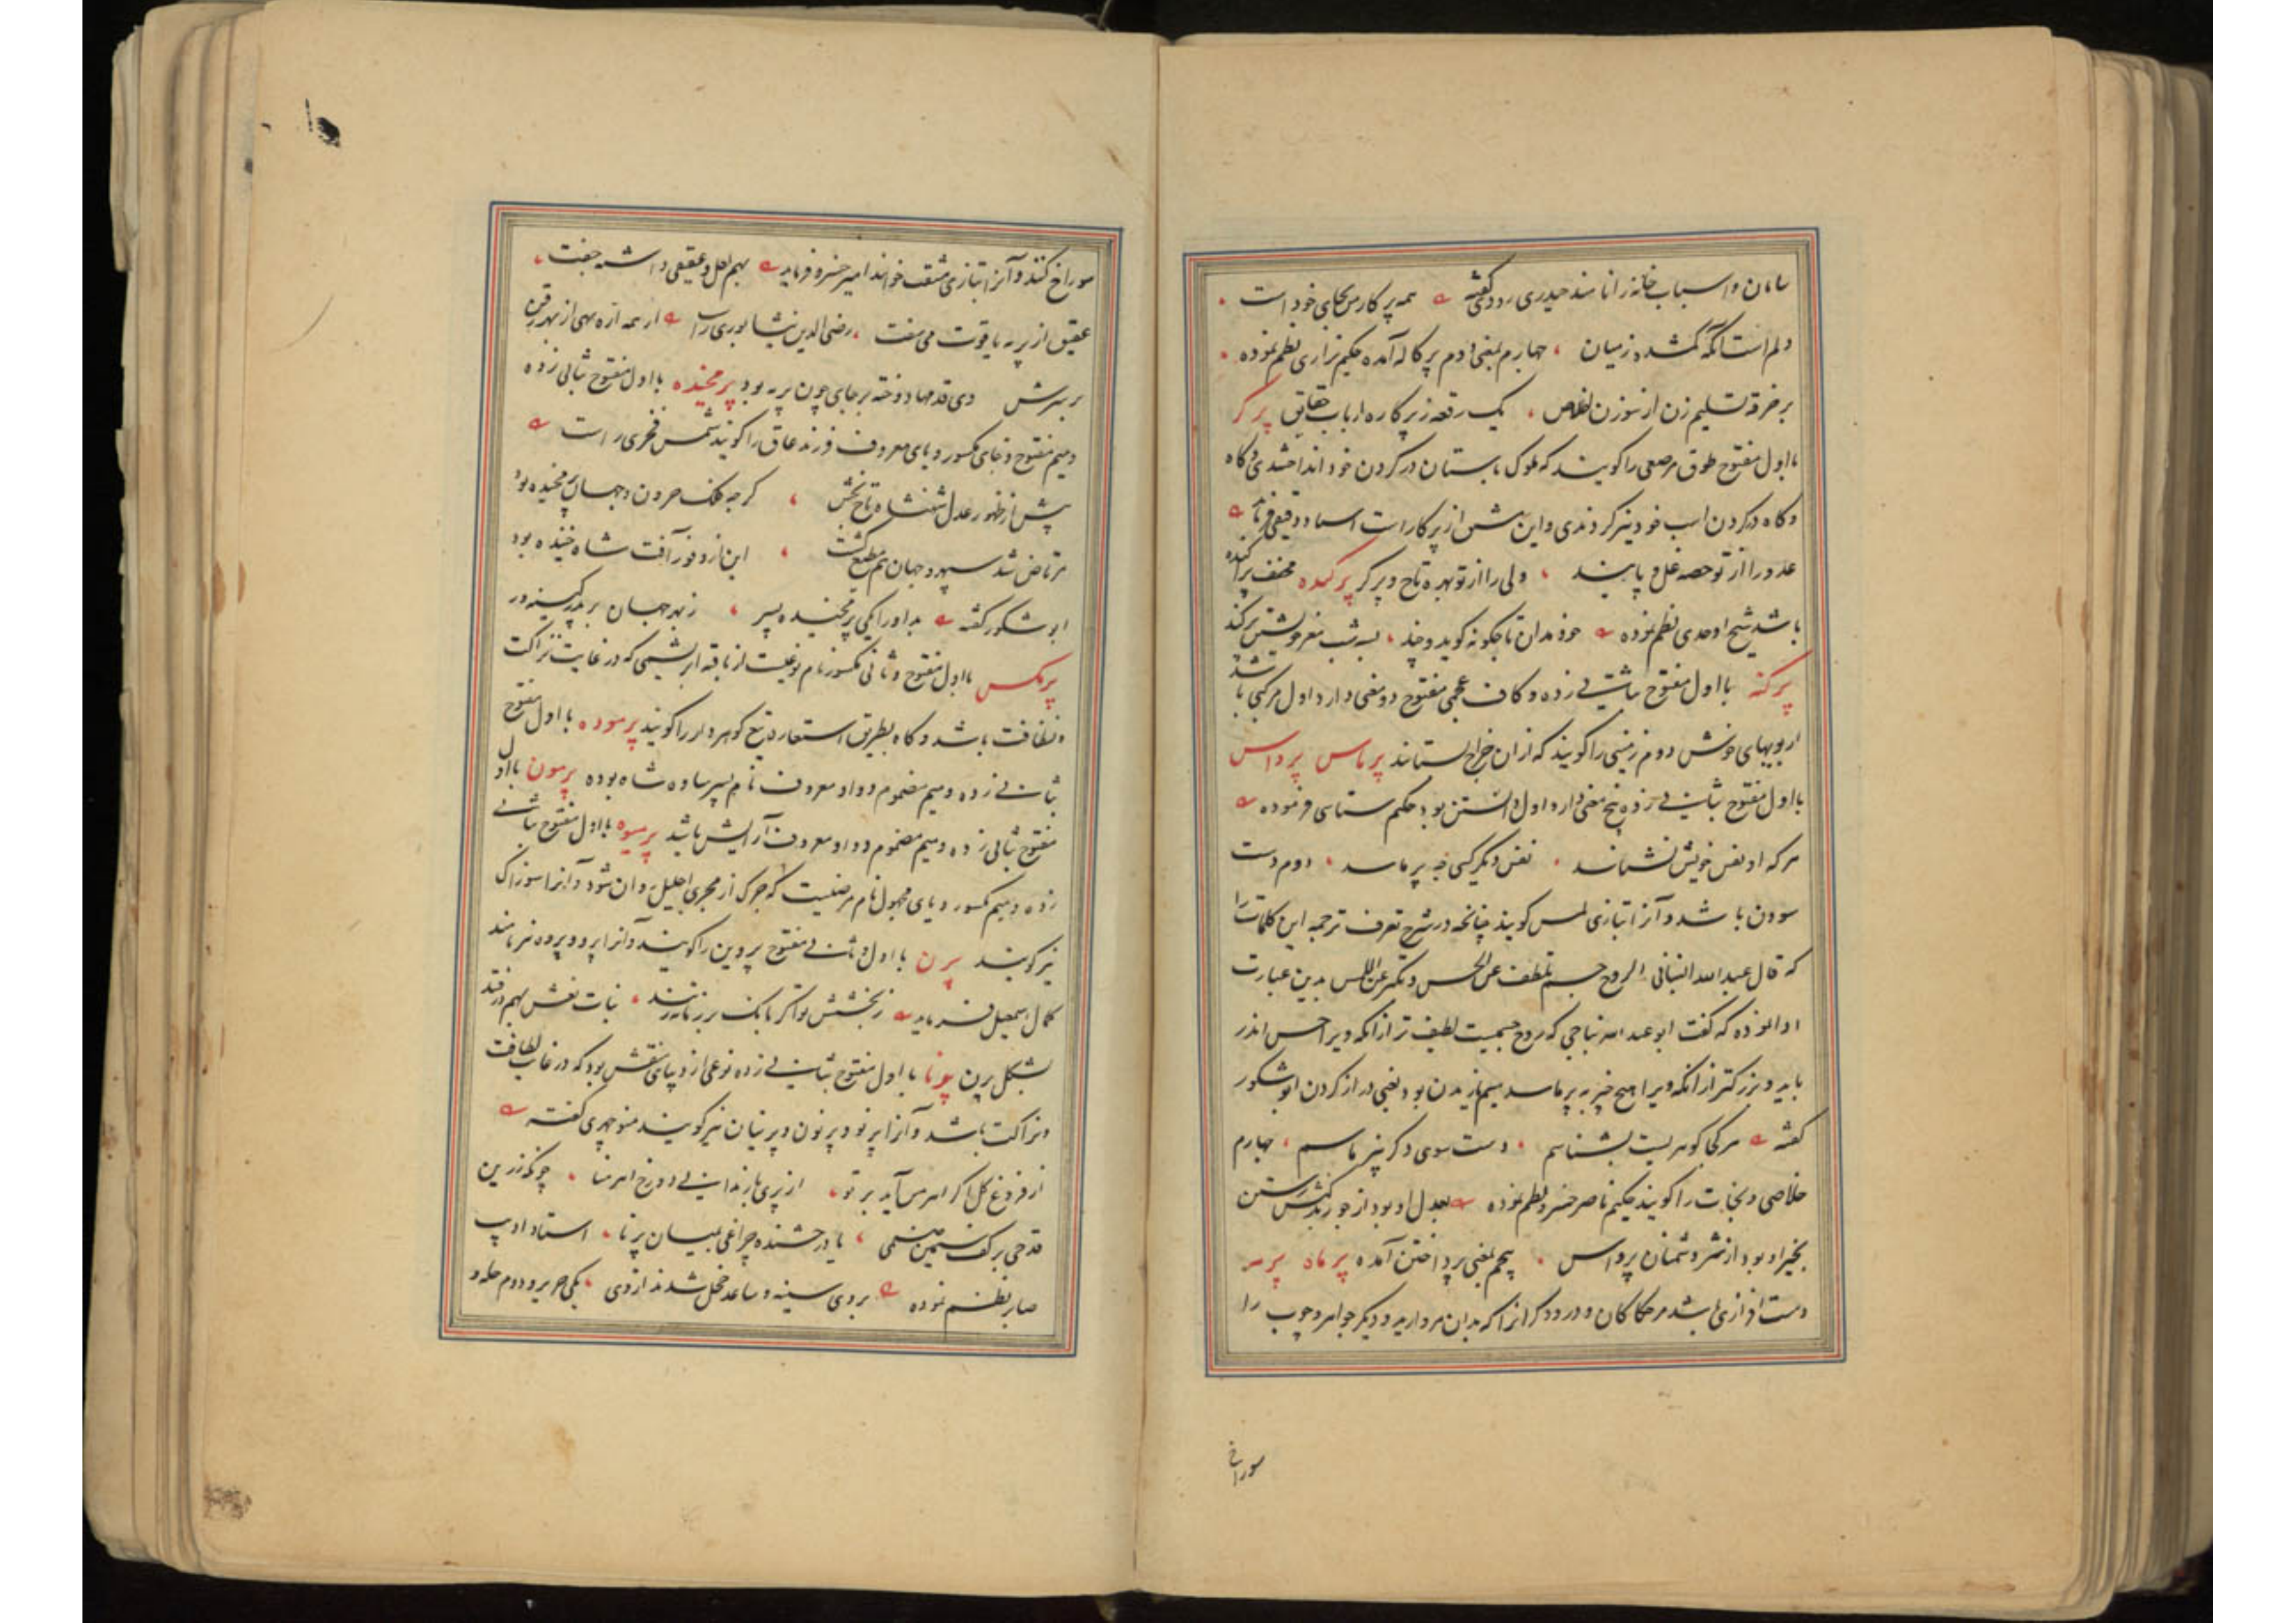 سامان و اسباب خانه را نامند حیدری رودکی گفته همه پرکار من بجای خود است
دلم است آنکه گمشده ز میان چهارم بمعنی دوم پرکاله آمده حکیم نزاری نظم نموده
بر خرقه تسلیم زن از سوزن اخلاص یک رقعه ز پرکاره ارباب حقایق پرگر
بااول مفتوح طوق مرصعی را گویند که ملوک باستان در گردن خود انداختندی و گاه
و گاه در گردن اسب خود نیز کردندی و این مشق از پرکار است استاد دقیقی فرماید
عدو را از تو حصه غل و پابند ولی را از تو بهره تاج و پرگر پرکنده مخفف پراکنده
باشد شیخ اوحدی نظم نموده خود مدان تا چگونه گوید و چند بسه شب مغز خویشتن پرکند
پرکنه بااول مفتوح بثانی زده و کاف عجمی مفتوح دو معنی دارد اول مرکبی باشد
از بویهای خوش دوم زمینی را گویند که از آن خراج ستانند پرماس پرواس
بااول مفتوح بثانی زده پنج معنی دارد اول دانستن بود حکیم سنائی فرموده
هر که او نفس خویش نشناسد نفس دیگر کسی چه پرماسد دوم دست
سودن باشد و آنرا بتازی لمس گویند چنانچه در شرح تعرف ترجمه این کلمات را
که قال عبدالله النباجی الروح جسم تلطف عن الحس و تکبر عن اللمس بدین عبارت
ادا نموده که گفت ابو عبد الله نباجی که روح جسمیست لطیف تر از آنکه ویرا حس اندر
یابد و بزرگتر از آنکه ویرا هیچ چیز بپرماسد سیم یازیدن بود یعنی دراز کردن ابوشکور
گفته هر کجا گوهریست بشناسم دست سوی دگر نپرماسم چهارم
خلاصی و نجات را گویند حکیم ناصر خسرو نظم نموده بعدل او بود از جور بدکنش رستن
بخیر او بود از شر دشمنان پرواس پنجم بمعنی پرداختن آمده پرماه پرمه
دست افزاری باشد مر حکاکان و درودگرانرا که بدان مروارید و دیگر جواهر و چوب را
سوراخ
سوراخ کنند و آنرا بتازی مثقب خوانند امیر خسرو فرماید بهم لعل و عقیقی داشته جفت
عقیق از پرمه یاقوت می سفت رضی الدین نیشابوری راست
بر سرش وی قدمها دوخته بر جای چون پرمه بود پرمخیده بااول مفتوح ثانی زده
و میم مفتوح و خای مکسور و یای معروف فرزند عاق را گویند شمس فخری راست
پیش از ظهور عدل شهنشاه تاج بخش گرچه فلک حرون و جهان پرمخیده بود
مرتاض شد سپهر و جهان هم مطیع گشت
ابوشکور گفته بد او را یکی پرمخیده پسر ز بهر جهان بر پدر کینه ور
پرمکس بااول مفتوح و ثانی مکسور نام نوعیست از بافته ابریشمی که در غایت نزاکت
و نظافت باشد و گاه بطریق استعاره تیغ گوهردار را گویند پرموده بااول مفتوح
بثانی زده و میم مضموم و واو معروف نام پسر ساوه شاه بوده پرمون بااول
مفتوح ثانی زده و میم مضموم و واو معروف آرایش باشد پرمیوه بااول مفتوح بثانی
زده و میم مکسور و یای مجهول نام مرضیست که چرک از مجری احلیل روان شود و آنرا سوزاک
نیز گویند پرن بااول و ثانی مفتوح پروین را گویند و آنرا پرو و پروه نیز نامند
کمال اسمعیل فرماید ز بخشش تو اگر بانک بر زمانه زنند بنات نعش بهم در فتد
بشکل پرن پرنا بااول مفتوح بثانی زده نوعی از دیبای منقش بود که در غایت لطافت
و نزاکت باشد و آنرا پرنو و پرنون و پرنیان نیز گویند منوچهری گفته
از فروغ گل اگر اهرمن آید بر تو از پری باز ندانی دو رخ اهرمنا چونکه زرین
قدحی بر کف سیمین صنمی یا درخشنده چراغی بمیان پرنا استاد ادیب
صابر نظم نموده بروی سینه و ساعد خجل شدند از وی یکی حریر و دوم حله و